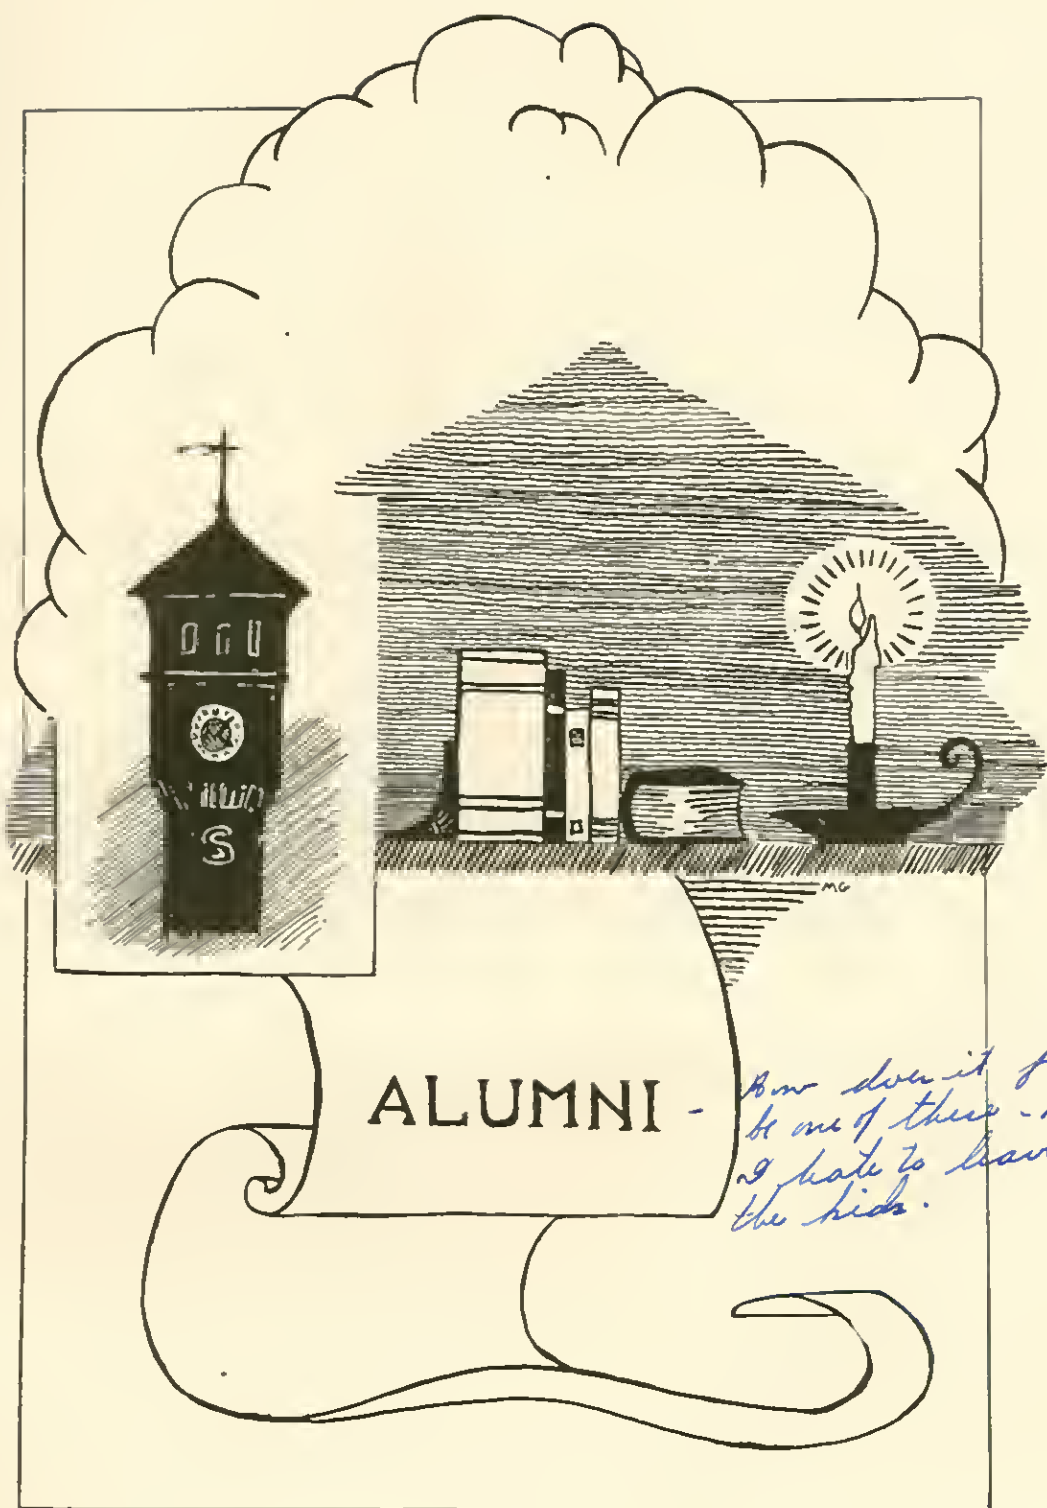 S
MG
ALUMNI -
How does it f
be one of these -
I hate to leav
the kids.